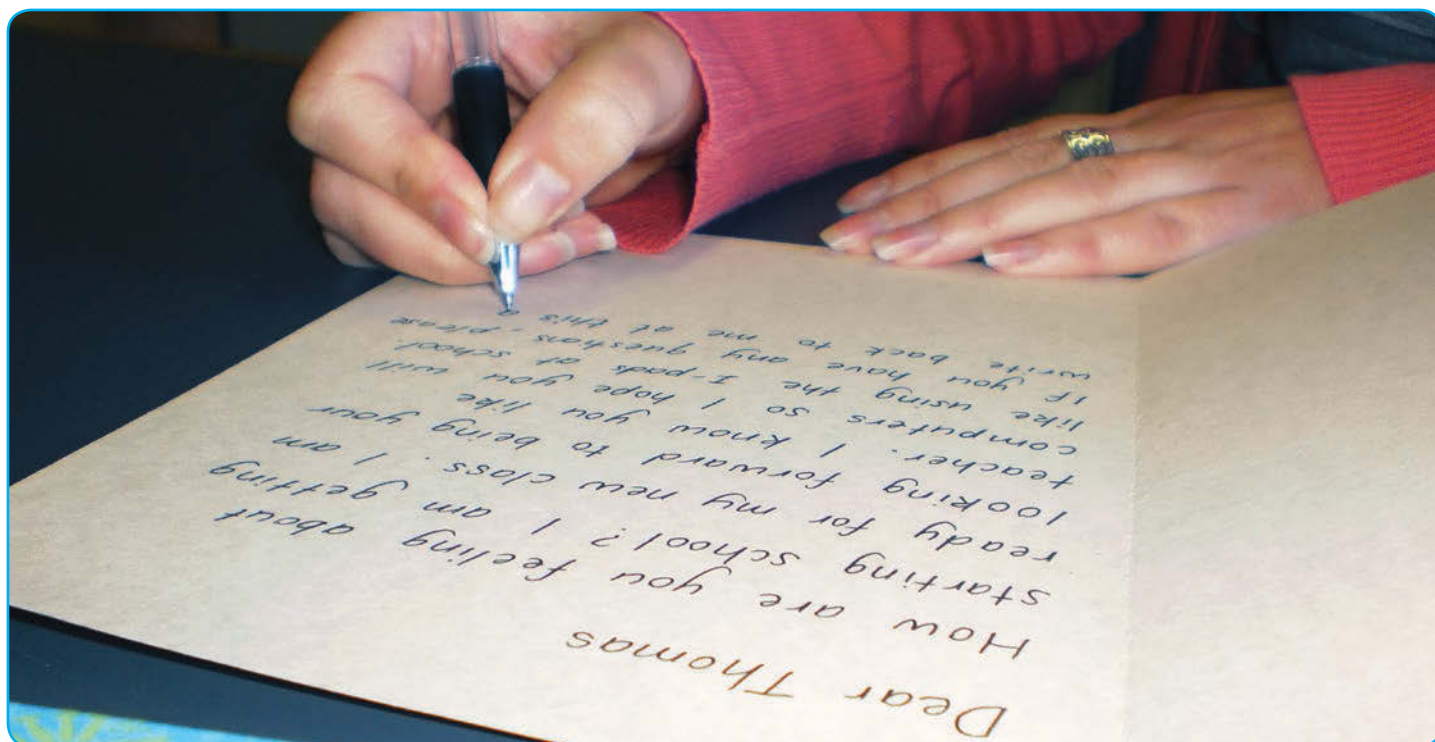 Dear Thomas
How are you feeling about
starting school? I am getting
ready for my new class. I am
looking forward to being your
teacher. I know you like
computers so I hope you will
like using the I-pads at school.
If you have any questions, please
write back to me at this a